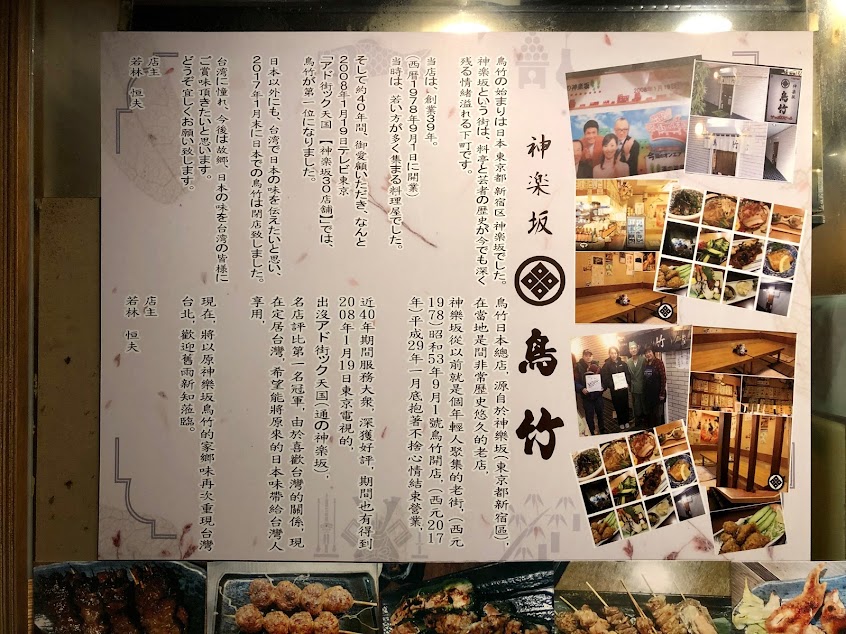 神楽坂 鳥竹
鳥竹の始まりは日本 東京都 新宿区 神楽坂でした。
神楽坂という街は、料亭と芸者の歴史が今でも深く
残る情緒溢れる下町です。
当店は、創業39年。
(西暦1978年9月1日に開業)
当時は、若い方が多く集まる料理屋でした。
そして約40年間、御愛顧いただき、なんと
2008年1月19日テレビ東京
「アド街ック天国 【神楽坂30店舗】」では、
鳥竹が第一位になりました。
日本以外にも、台湾で日本の味を伝えたいと思い、
2017年1月末に日本での鳥竹は閉店致しました。
台湾に憧れ、今後は故郷、日本の味を台湾の皆様に
ご賞味頂きたいと思います。
どうぞ宜しくお願い致します。
店主
若林 恒夫
鳥竹日本總店，源自於神樂坂(東京都新宿區)，
在當地是間非常歷史悠久的老店，
神樂坂從以前就是個年輕人聚集的老街，(西元
1978)昭和53年9月1號鳥竹開店，(西元2017
年)平成29年一月底抱著不捨心情結束營業，
近40年期間服務大衆，深獲好評，期間也有得到
2008年1月19日東京電視的，
出沒アド街ック天国(通の神楽坂)，
名店評比第一名冠軍，由於喜歡台灣的關係，現
在定居台灣，希望能將原來的日本味帶給台灣人
享用，
現在，將以原神樂坂鳥竹的家鄉味再次重現台灣
台北，歡迎舊雨新知蒞臨。
店主
若林 恒夫
鳥竹